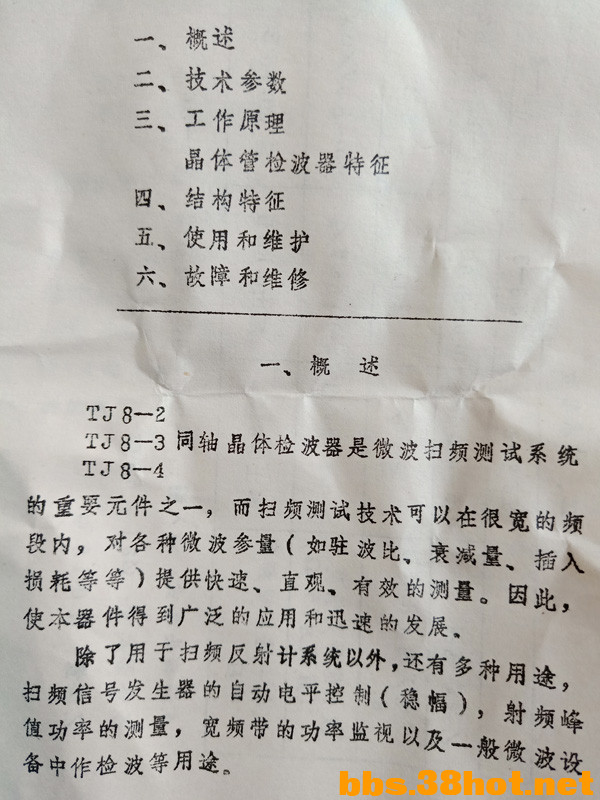 一、概述
二、技术参数
三、工作原理
晶体管检波器特征
四、结构特征
五、使用和维护
六、故障和维修
一、概 述
TJ8—2
TJ8—3 同轴晶体检波器是微波扫频测试系统
TJ8—4
的重要元件之一，而扫频测试技术可以在很宽的频
段内，对各种微波参量（如驻波比、衰减量、插入
损耗等等）提供快速、直观、有效的测量。因此，
使本器件得到广泛的应用和迅速的发展。
除了用于扫频反射计系统以外，还有多种用途，
扫频信号发生器的自动电平控制（稳幅），射频峰
值功率的测量，宽频带的功率监视以及一般微波设
备中作检波等用途。
bbs.38hot.net